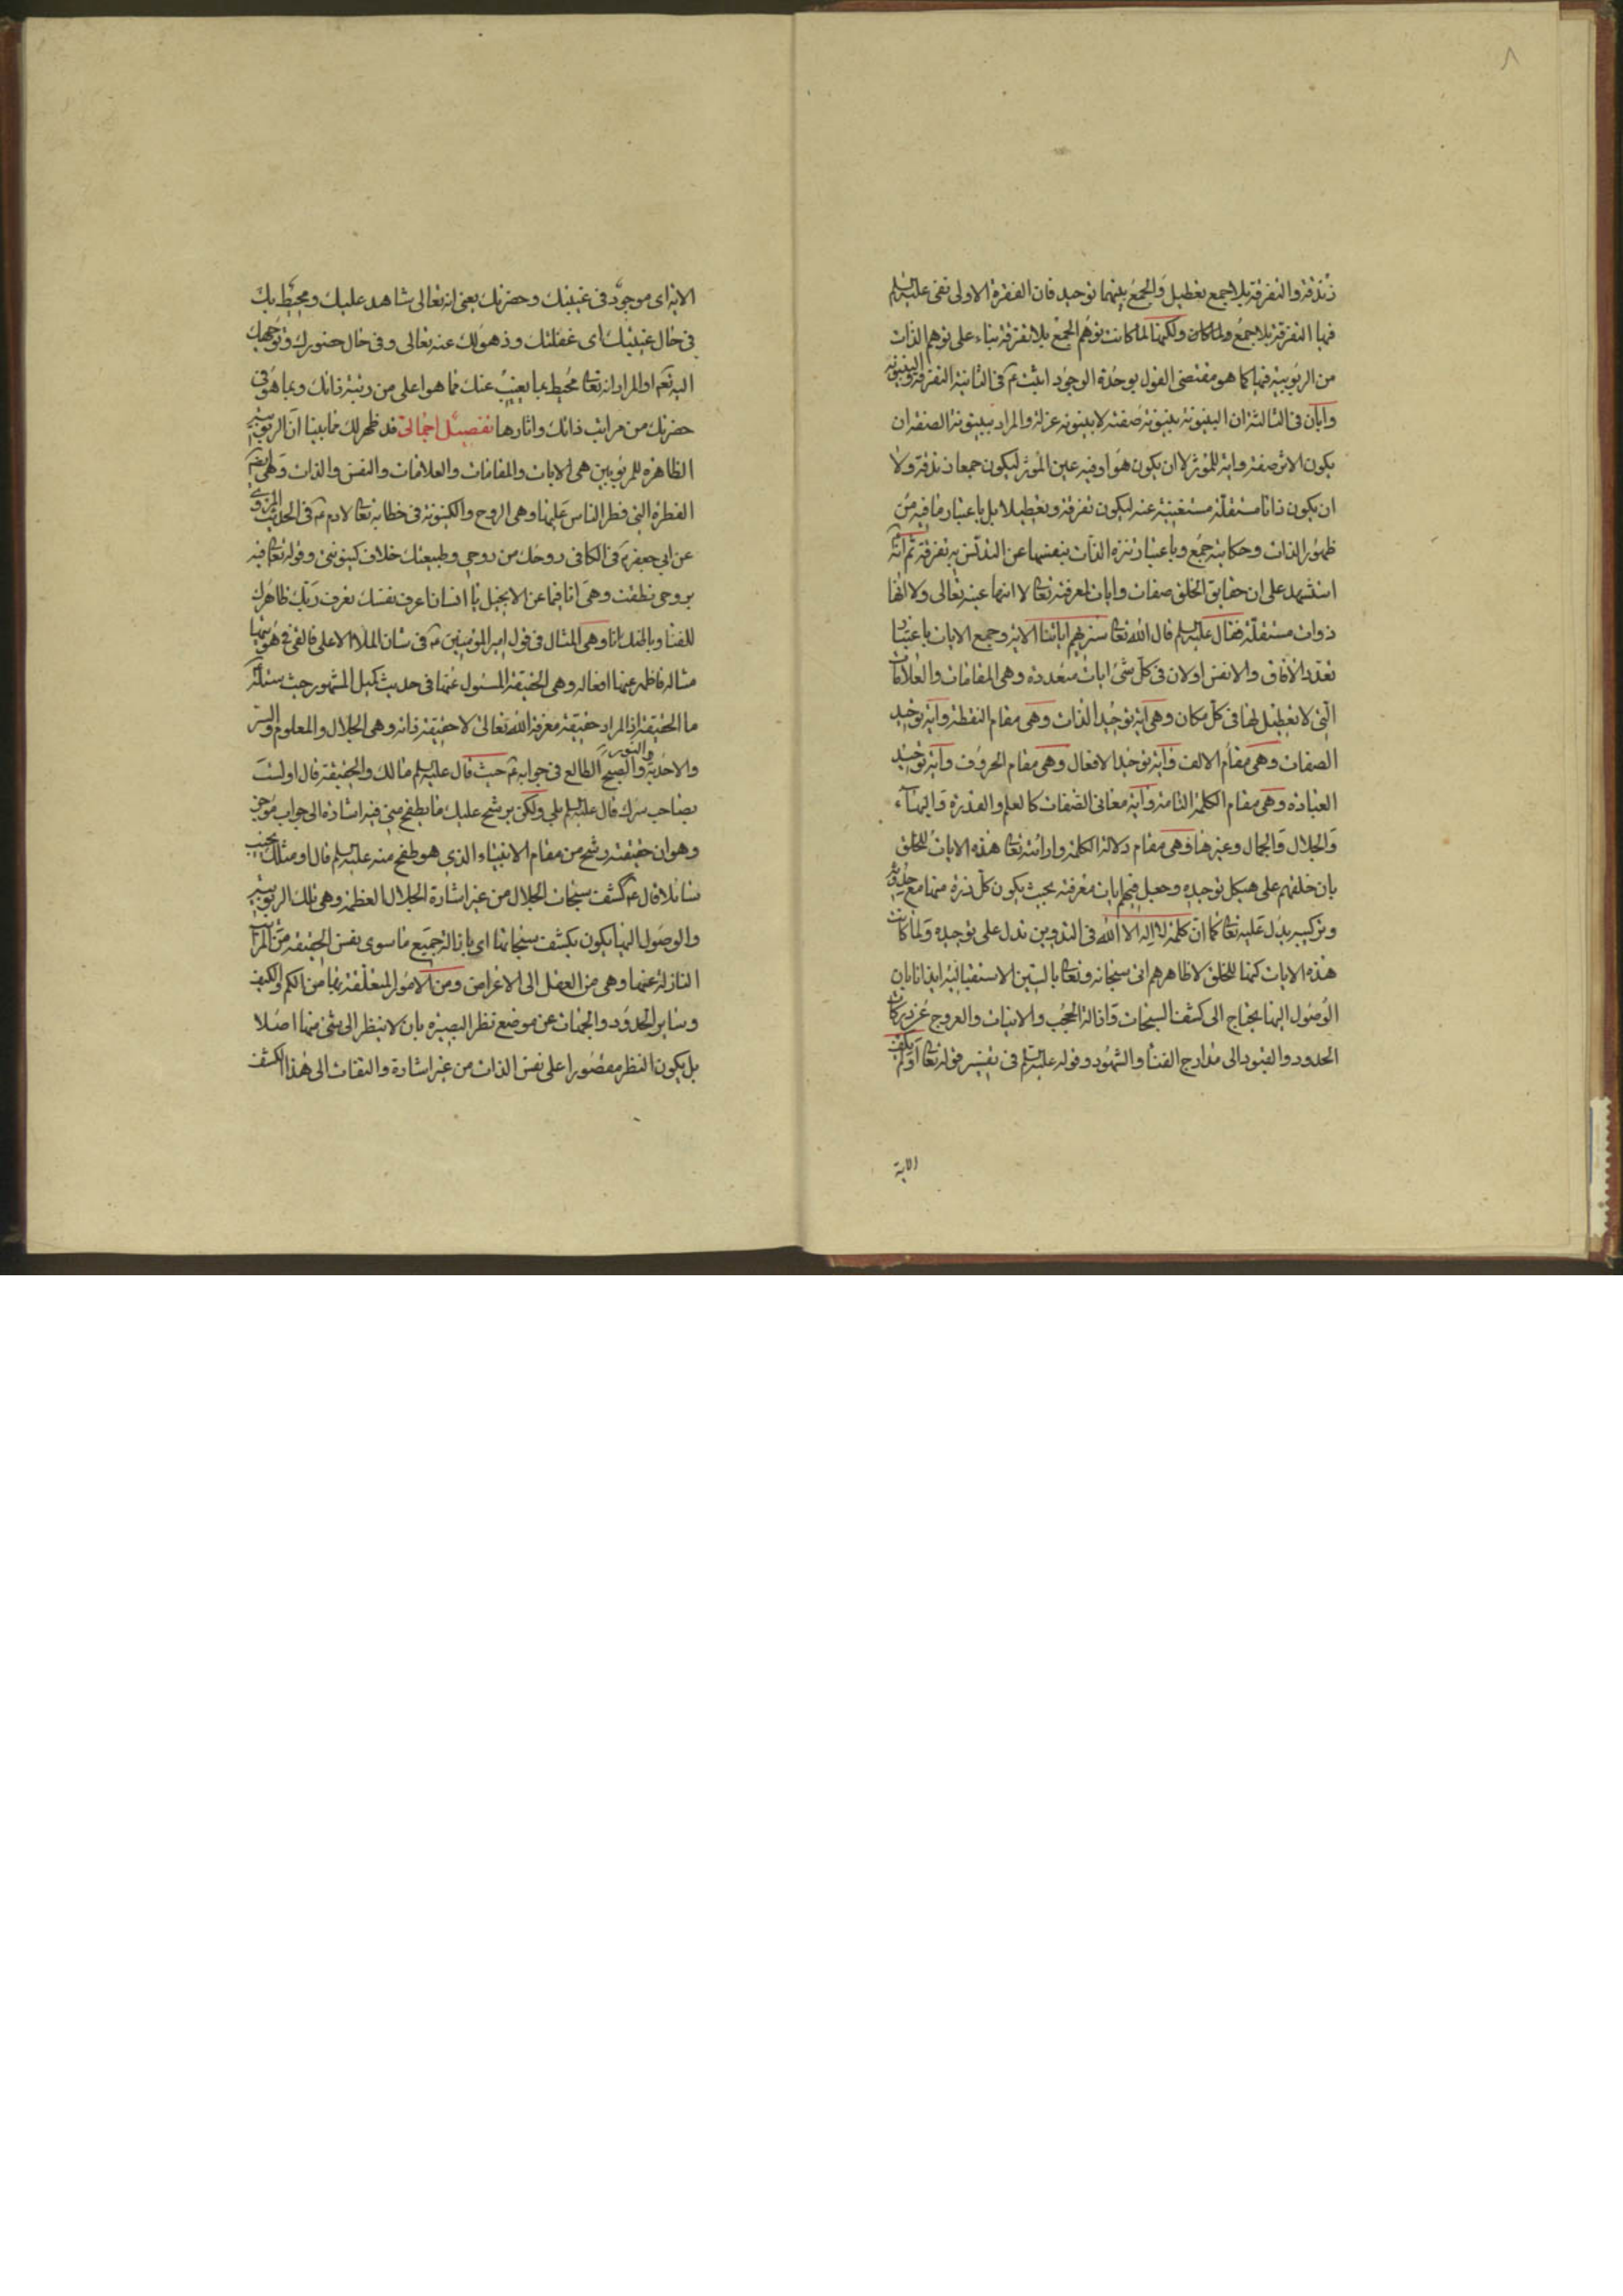 ٨
زندقة والتفرقة بلا جمع تعطيل والجمع بينهما توحيد فان الفقرة الاولى نفى عليه السلم
فيها التفرقة بلا جمع ولما كان ولكنها لما كانت توهم الجمع بلا تفرقة بناء على توهم الذات
من الربوبية فيها كما هو مقتضى القول بوحدة الوجود اثبت ع في الثانية التفرقة والبينونة
وابان في الثالثة ان البينونة بينونة صفة لا بينونة عزلة والمراد ببينونة الصفة ان
يكون الاثر صفة واية للمؤثر لا ان يكون هو او فيه عين المؤثر ليكون جمعا زندقة ولا
ان يكون ذاتا مستقلة مستغنية عنه ليكون تفرقة وتعطيلا بل باعتبار ما فيه من
ظهور الذات وحكايته جمع وباعتبار تنزه الذات بنفسها عن التدنس به تفرقة ثم انه
استشهد على ان حقايق الخلق صفات وايات لمعرفته تعا لا انها عينه تعالى ولا انها
ذوات مستقلة فقال عليه السلم قال الله تعا سنريهم اياتنا الاية وجمع الايات باعتبار
تعدد الافاق والانفس او لان في كل شئ ايات متعددة وهي المقامات والعلامات
التي لا تعطيل لها في كل مكان وهي اية توحيد الذات وهي مقام النقطة واية توحيد
الصفات وهي مقام الالف واية توحيد الافعال وهي مقام الحروف واية توحيد
العبادة وهي مقام الكلمة التامة واية معاني الصفات كالعلم والقدرة والبهاء
والجلال والجمال وغيرها وهي مقام دلالة الكلمة وارائته تعا هذه الايات للخلق
بان خلقهم على هيكل توحيده وجعل فيهم ايات معرفته بحيث يكون كل ذرة منها مع حدوثه
وتركيبه يدل عليه تعا كما ان كلمة لا اله الا الله في التدوين تدل على توحيده ولما كانت
هذه الايات كمنا للخلق لا ظاهرهم اتى سبحانه وتعا بالسين الاستقبالية ايذانا بان
الوصول اليها يحتاج الى كشف السبحات وازالة الحجب والانيات والعروج عن دركات
الحدود والقيود الى مدارج الفناء والشهود وقوله عليه السلم في تفسير قوله تعا اولم يكف
الاية
الاية اى موجود في غيبتك وحضرتك يعنى انه تعالى شاهد عليك ومحيط بك
في حال غيبتك اى غفلتك وذهولك عنه تعالى وفي حال حضورك وتوجهك
اليه نعم او المراد انه تعا محيط بما يغيب عنك مما هو اعلى من رتبة ذاتك وبما هو في
حضرتك من مراتب ذاتك واثارها تفصيل اجمالى قد ظهر لك مما بينا ان الربوبية
الظاهرة للمربوبين هي الايات والمقامات والعلامات والنفس والذات وهى ايضا
الفطرة التي فطر الناس عليها وهى الروح والكينونة في خطابه تعا لادم ع في الحديث المروي
عن ابي جعفر ع في الكافي روحك من روحي وطبيعتك خلاف كينونتي وقوله تعا فيه
بروحي نطقت وهى انا فيما عن الانجيل يا انسان اعرف نفسك تعرف ربك ظاهرك
للفناء وباطنك انا وهى المثال في قول امير المؤمنين ع في شان الملا الاعلى فالقى في هويتها
مثاله فاظهر عنها افعاله وهى الحقيقة المسئول عنها في حديث كميل المشهور حيث سئله
ما الحقيقة اذ المراد حقيقة معرفة الله تعالى لا حقيقة ذاته وهى الجلال والمعلوم والستر
والاحدية والنور والصبح الطالع في جوابه ع حيث قال عليه السلم مالك والحقيقة قال اولست
بصاحب سرك قال عليه السلم بلى ولكن يرشح عليك ما يطفح مني فيه اشارة الى جواب موجز
وهو ان حقيقته رشح من مقام الانبياء الذي هو طفح منه عليه السلم قال او مثلك يخيب
سائلا قال ع كشف سبحات الجلال من غير اشارة الجلال العظمة وهى تلك الربوبية
والوصول اليها يكون بكشف سبحاتها اى بازالة جميع ما سوى نفس الحقيقة من المراتب
النازلة عنها وهى من العقل الى الاعراض ومن الامور المتعلقة بها من الكم والكيف
وساير الحدود والجهات عن موضع نظر البصيرة بان لا ينظر الى شئ منها اصلا
بل يكون النظر مقصورا على نفس الذات من غير اشارة والتفات الى هذا الكشف